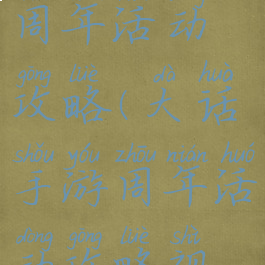 周年活动
gōng lüè dà huà
攻略(大话
shǒu yóu zhōu nián huó
手游周年活
dòng gōng lüè shì
动攻略视